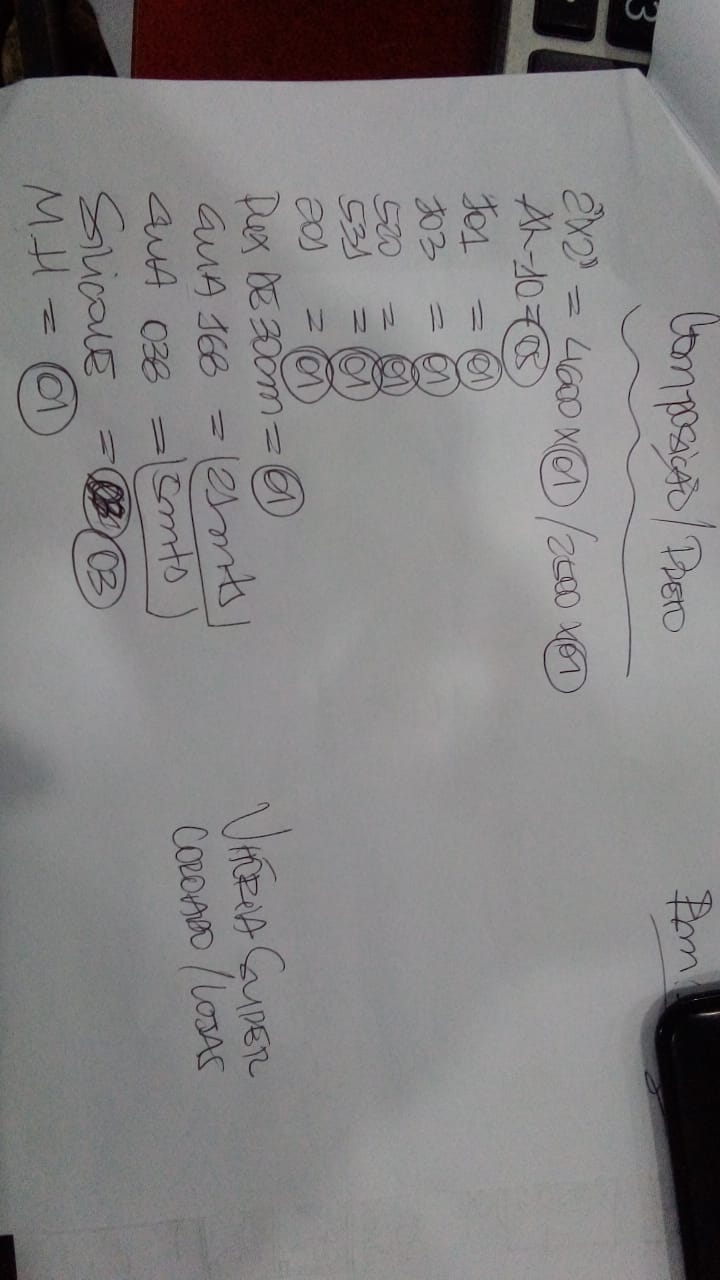 Composição / Preto
2"x2" = 4600 x 01 / 2500 x 01
Al-10 = 03
101 = 01
103 = 01
520 = 01
531 = 01
201 = 01
Pux DE 300m = 01
GUIA 168 = 25mts
GUIA 038 = 5mts
SILICONE = 03
M.H = 01
VITÓRIA SUPER
COROADO / LOJAS
3